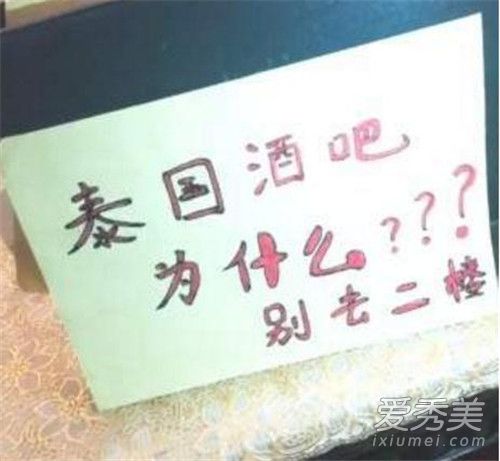 泰国酒吧
为什么???
别去二楼
爱秀美
ixiumei.com